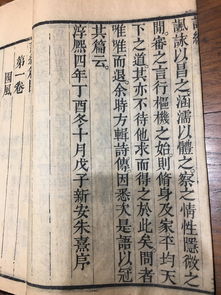 諷詠以昌之涵濡以體之察之情性隱微之
閒審之言行樞機之始則脩身及家平均天
下之道其亦不待他求而得之於此矣問者
唯唯而退余時方輯詩傳因悉次是語以冠
其篇云
淳熙四年丁酉冬十月戊子新安朱熹序
第一卷
國風